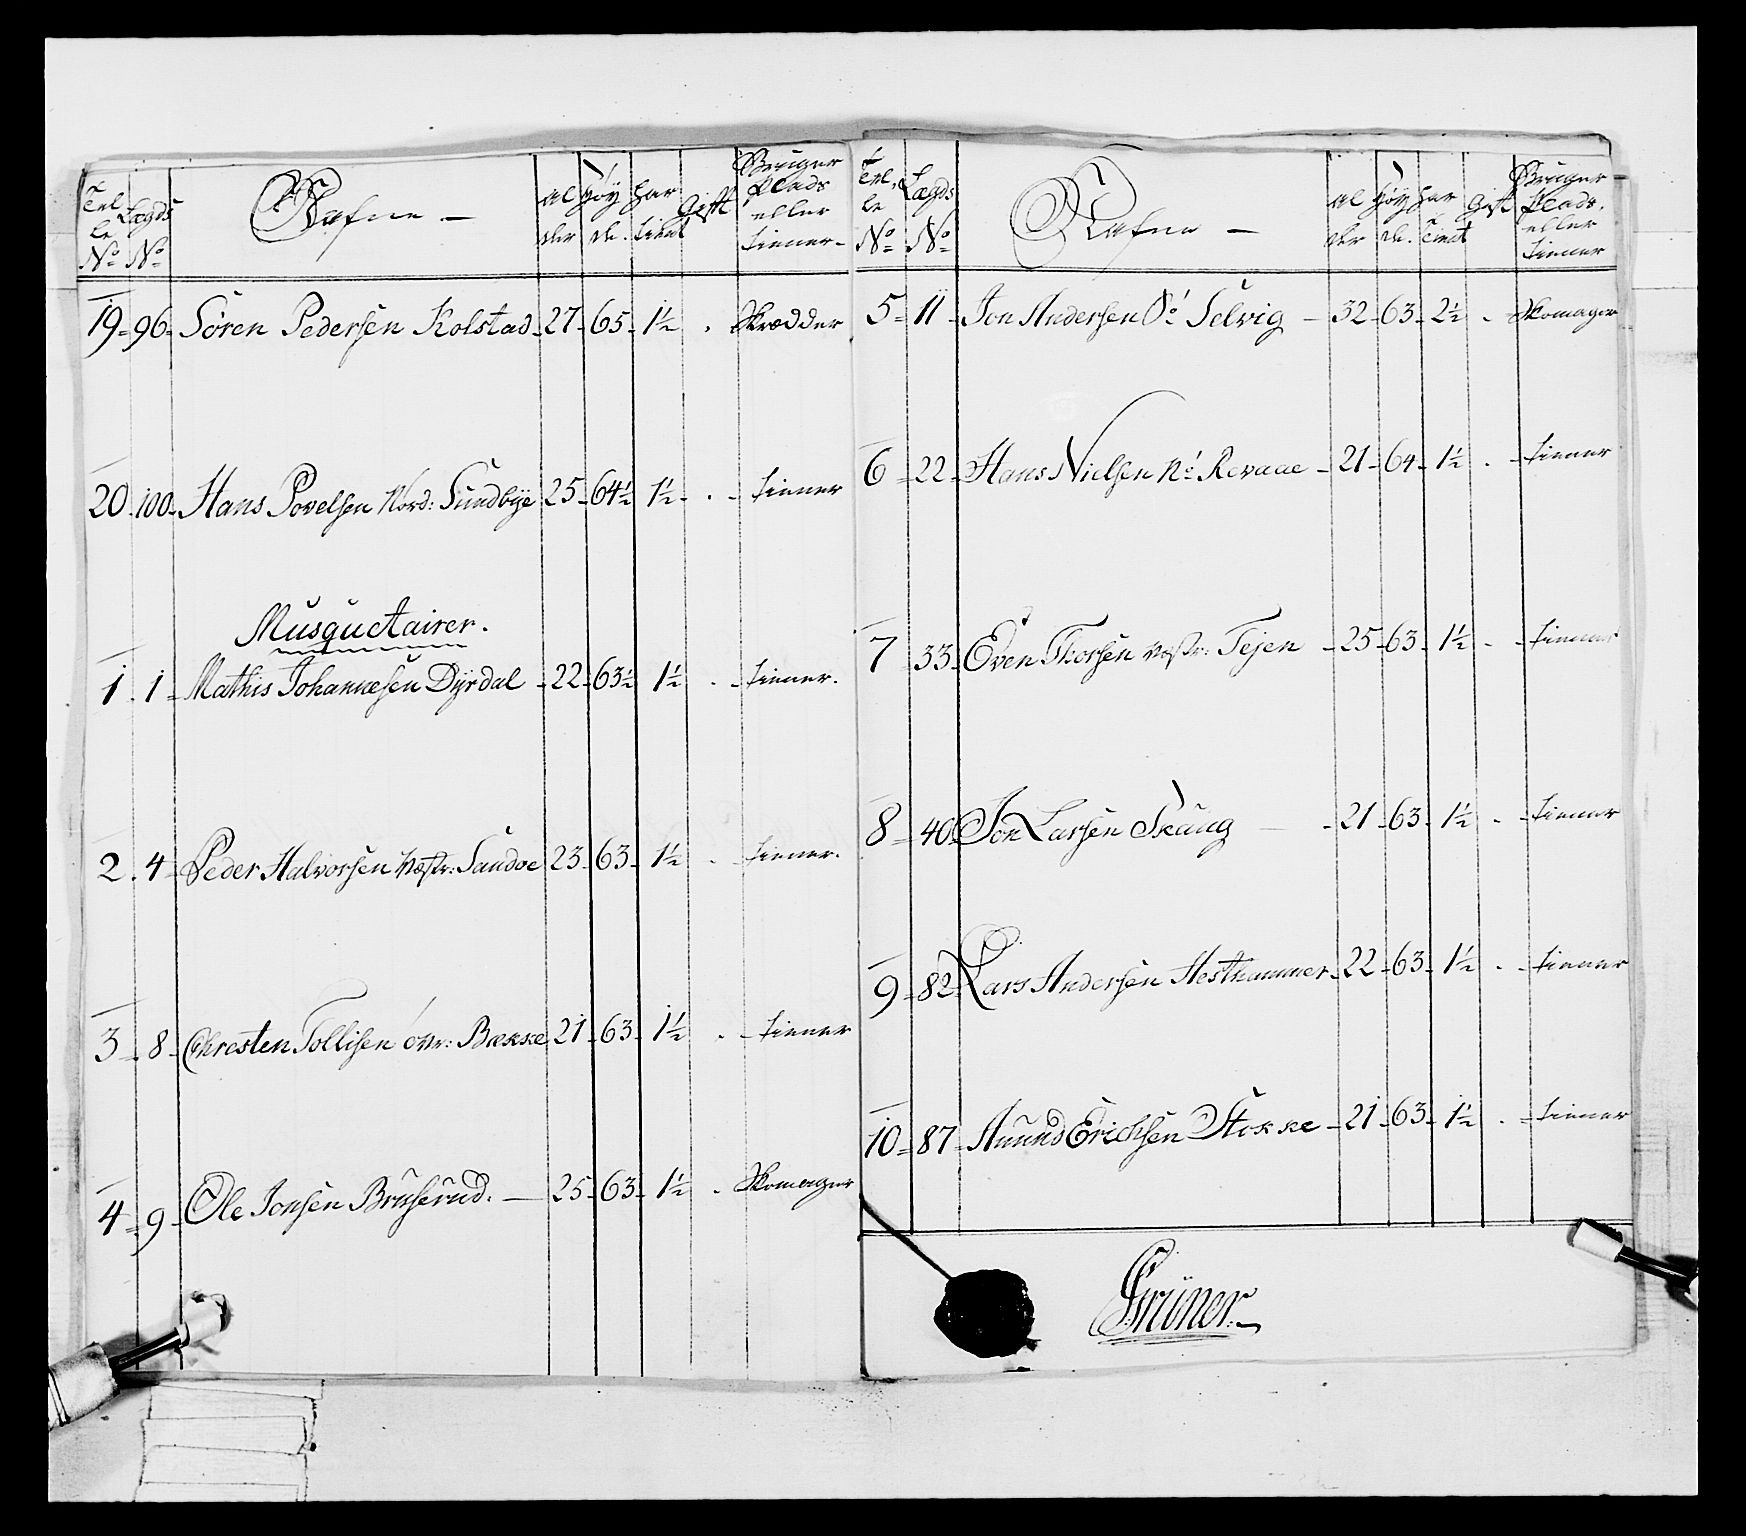 Tel
le
No
Lægds
No
Nafne —
al
der
Höy
de.
har
tient
Gift
Bruger
Plads
eller
tienner
19 - 96 - Sören Pedersen Kolstad - 27 - 65 - 1½ . Skrædder
20 - 100 - Hans Povelsen Nord: Sundbye 25 - 64½ 1½ - . - tienner
Musquetairer.
1 - 1 - Mathis Johannesen Dyrdal - 22 - 63½ 1½ . - tienner.
2 . 4 - Peder Halvorsen Væstr: Sandoe 23 - 63 - 1½ . - tienner.
3 - 8 - Chresten Tollisen övr: Bække 21 - 63 - 1½ . - tienner
4 - 9 - Ole Jonsen Bruserud. — 25 - 63 - 1½ . Skomager
Tel
le
No
Lægds
No
Nafne —
al
der
Höy
de.
har
tient
Gift
Bruger
Plads.
eller
tienner
5 - 11 - Jon Andersen Sö: Selvig - 32 - 63 - 2½ . - Skomager
6 - 22 - Hans Nielsen No: Revaae - 21 - 64 - 1½ . - tienner
7 - 33 - Even Thorsen Væstr: Tejen - 25 - 63 - 1½ . - tienner
8 - 40 Jon Larsen Skaug — - 21 - 63 - 1½ . - tienner
9 - 82 - Lars Andersen Hesthammer - 22 - 63 - 1½ . - tienner
10 - 87 - Amund Erichsen Stokke - 21 - 63 - 1½ . - tienner
Grüner.